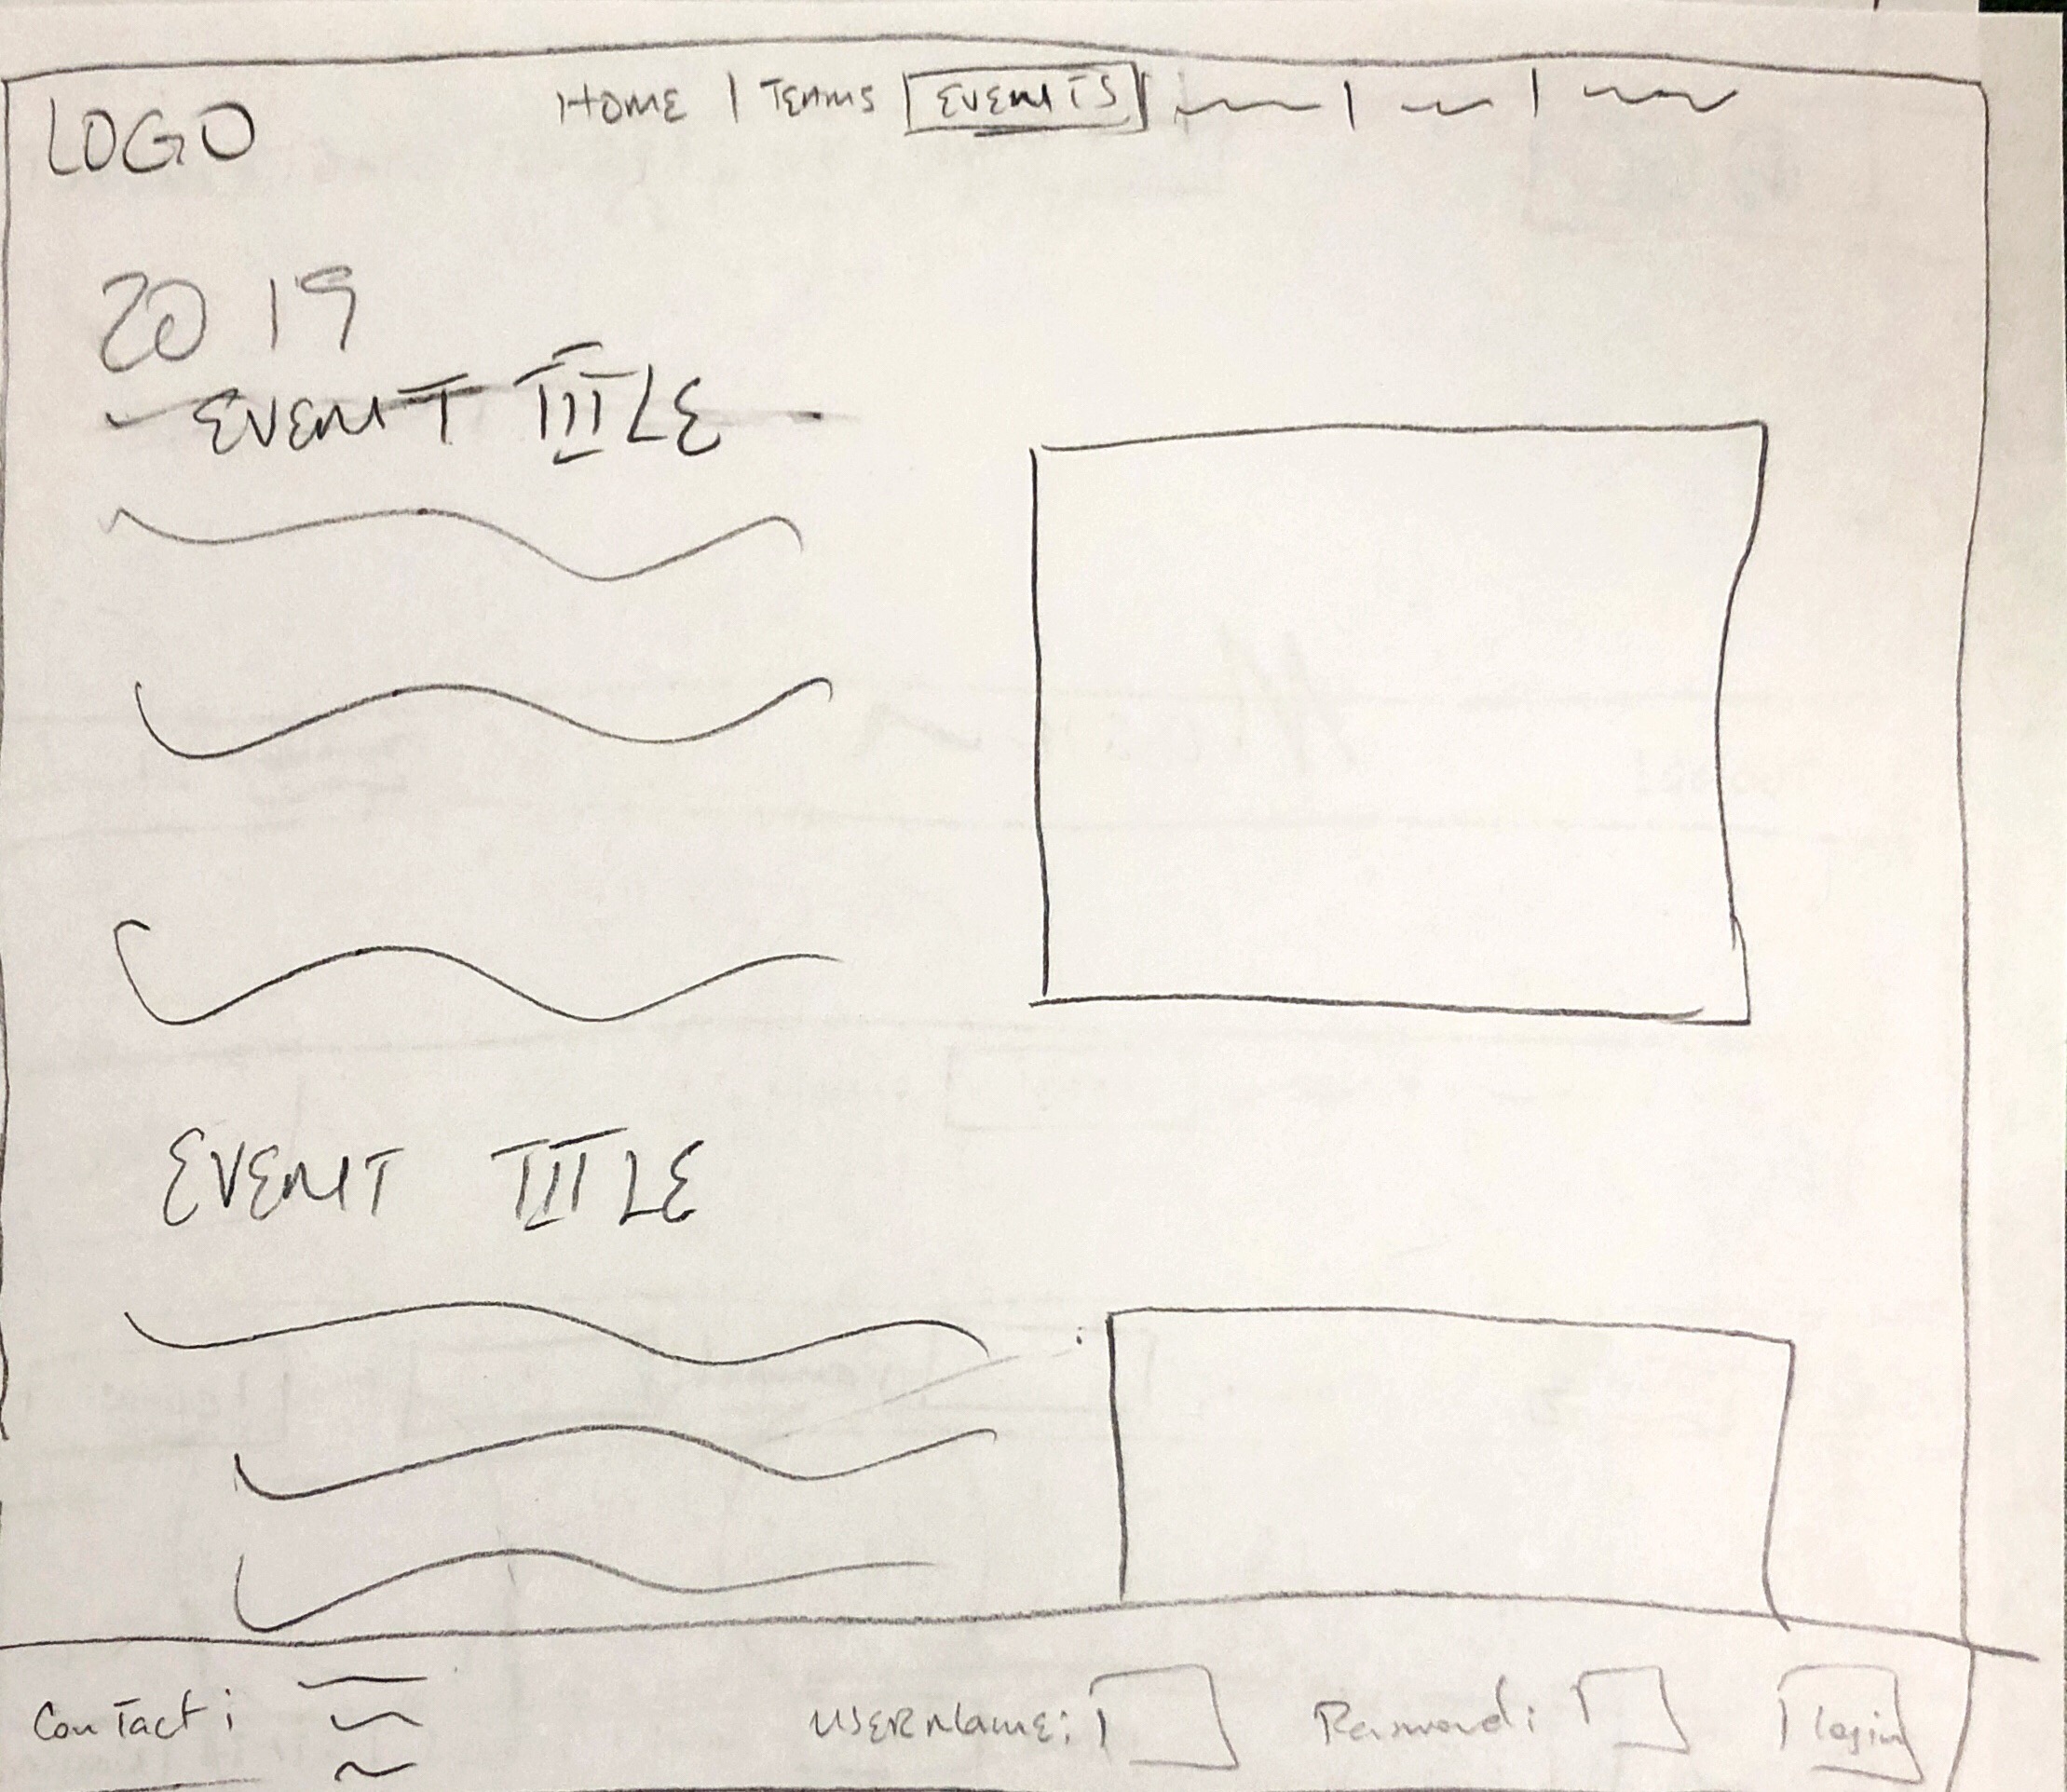 LOGO
HOME | TEAMS | EVENTS
2019
EVENT TITLE
EVENT TITLE
Contact:
USERNAME:
Password:
login